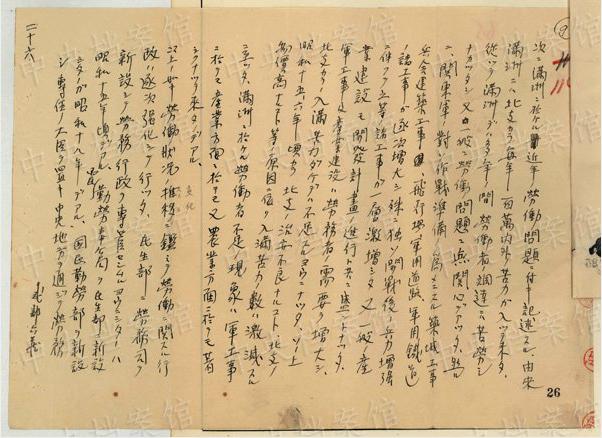 次ニ満洲ニ於ケル近年ノ労働問題ニ付テ記述スル、由来
満洲ニハ北支カラ毎年一百萬内外ノ苦力ガ入ツテ来タ、
従ツテ満洲デハ多年ノ間労働者調達ニハ苦労シ
ナカツタシ又一般ニ労働問題ニ無関心デアツタ、然ル
ニ、関東軍ノ対ソ作戦準備ノ為メニスル築城工事
兵舎建築工事、飛行場、軍用道路、軍用鉄道
ノ諸工事ガ逐次増大シ殊ニ独ソ開戦後兵力増強
ニ伴フテ是等諸工事ガ層激増シタ又一般産
業建設モ開発計畫ノ進行ト共ニ盛トナツタ、
軍工事ト産業建設ハ労務者ノ需要ヲ増大シ、
北支カラ入満苦力ダケデハ不足スルヨウニナツタ、ソノ上
昭和十五、六年頃カラ北支ノ治安不良ナルコト、北支ノ
物價高ナルコト等ノ原因ニ値リ入満苦力ノ数ハ激減スルニ
至ツタ、満洲ニ於ケル労働者不足ノ現象ハ軍工事
ニ於テモ産業方面ニ於テモ又農業方面ニ於テモ著
シクナツテ来タノデアル、
以上ノ如キ労働状況ノ推移ニ鑑ミテ労働ニ関スル行
変化
政ハ逐次強化シテ行ツタ、民生部ニ労務司ヲ
新設シテ労務行政ヲ専管セシムルヨウニシタノハ
昭和十五年頃デアル、勤労奉公局ヲ民生部ニ新設
シタノガ昭和十八年デアル、国民勤労部ヲ新設
シ専任ノ大臣ヲ置キ中央地方ヲ通ジテ労務
二十六
26